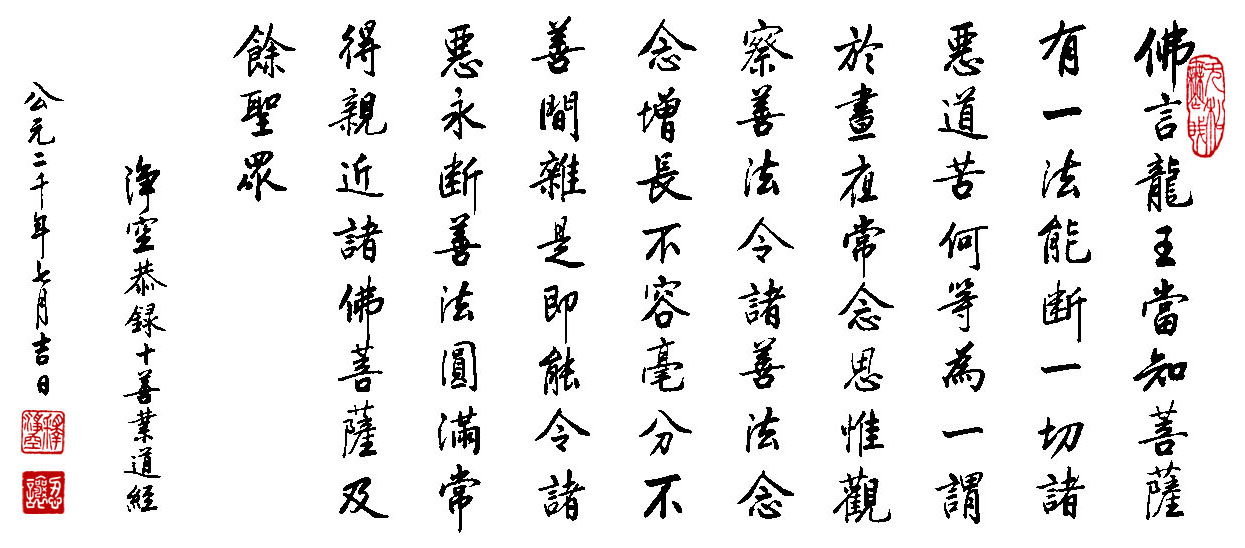 佛言龍王當知菩薩
有一法能断一切諸
惡道苦何等為一謂
於晝夜常念思惟觀
察善法令諸善法念
念增長不容毫分不
善間雜是即能令諸
惡永断善法圓滿常
得親近諸佛菩薩及
餘聖眾
淨空恭録十善業道經
公元二千年七月吉日